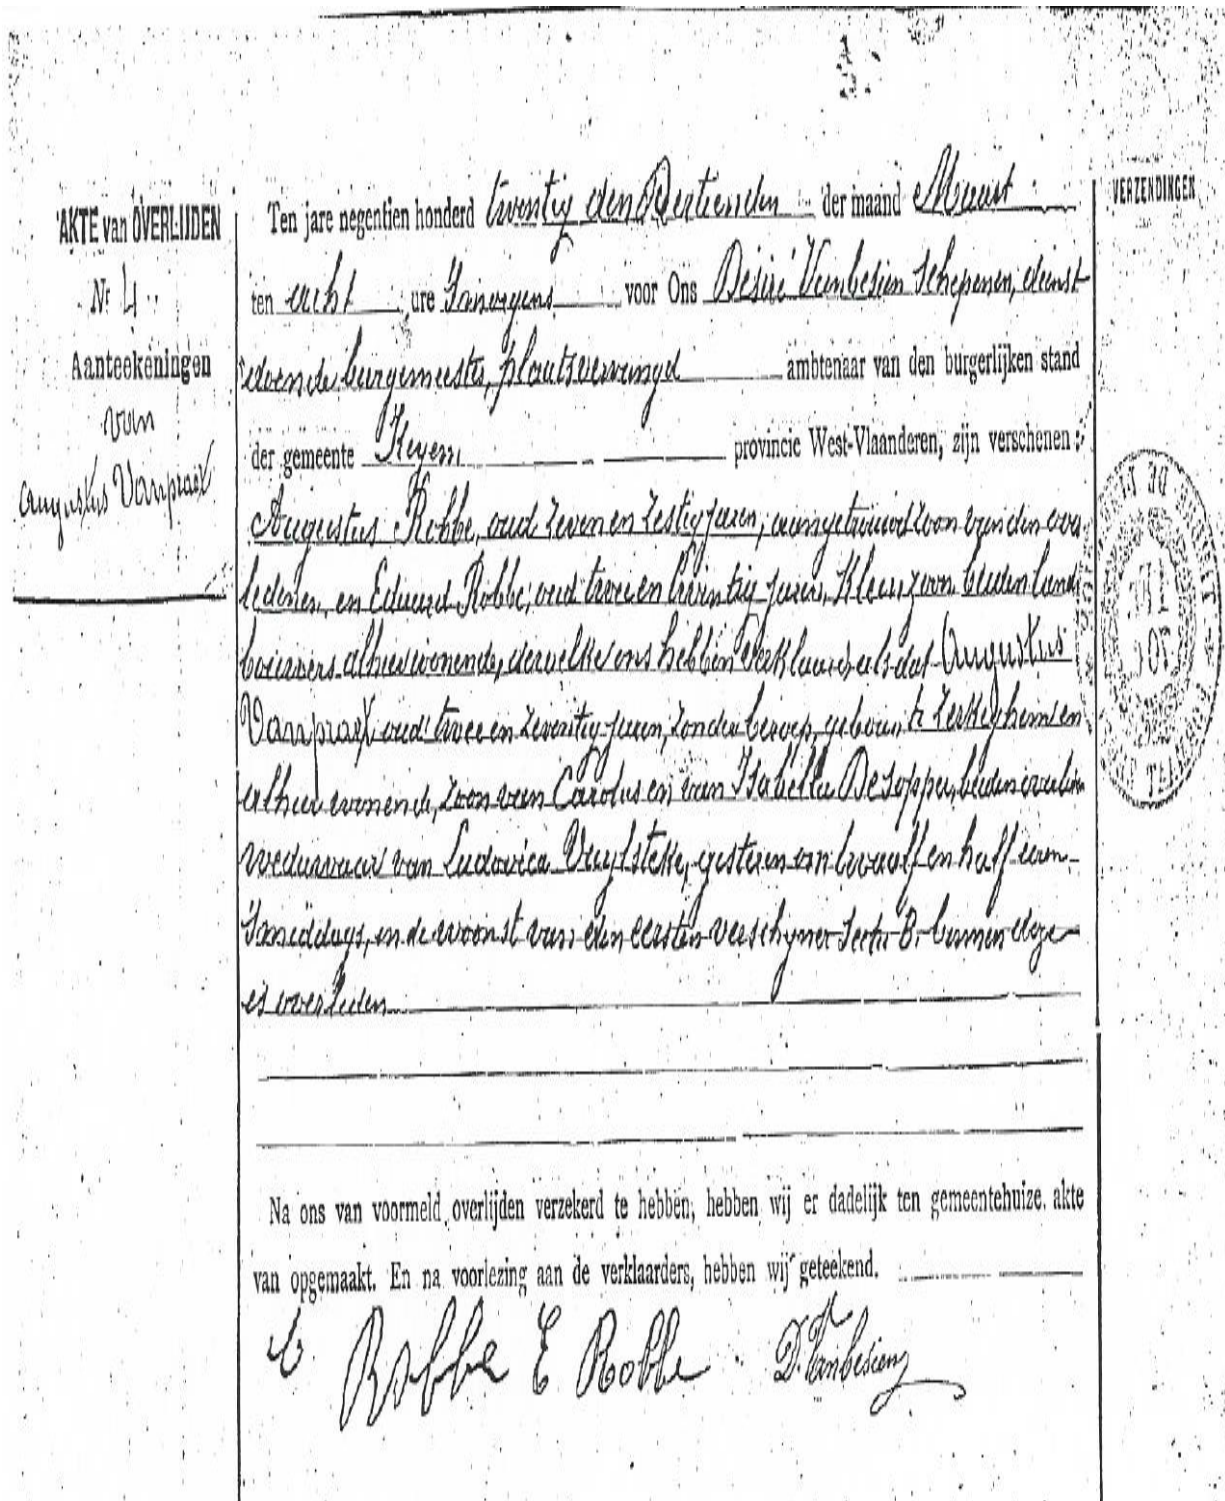 AKTE van OVERLIJDEN
Nr 4
Aanteekeningen
van
Augustus Vanpraet
VERZENDINGEN
Ten jare negentien honderd twentig den Dertienden der maand Maart
ten acht ure 's morgens voor Ons Désiré Vanbesien Schepenen, dienst-
doende burgemeester, plaatsvervangd ambtenaar van den burgerlijken stand
der gemeente Keyem provincie West-Vlaanderen, zijn verschenen:
Augustus Robbe, oud zeven en zestig jaren, aangetrouwd zoon van den over-
ledenen, en Eduard Robbe, oud twee en twintig jaren, Kleinzoon, beiden land-
bouwers alhier wonende, dewelke ons hebben verklaard als dat Augustus
Vanpraet, oud twee en zeventig jaren, zonder beroep, geboren te Zerkeghem en
alhier wonende, zoon van Carolus en van Isabella De Sopper, beiden overleden
weduwaar van Ludovica Vuylsteke, gisteren om twaalf en half uren
's middags, in de woonst van den eersten verschyner Sectie B. binnen deze
is overleden
Na ons van voormeld overlijden verzekerd te hebben, hebben wij er dadelijk ten gemeentehuize akte
van opgemaakt. En na voorlezing aan de verklaarders, hebben wij geteekend.
Robbe E Robbe D. Vanbesien